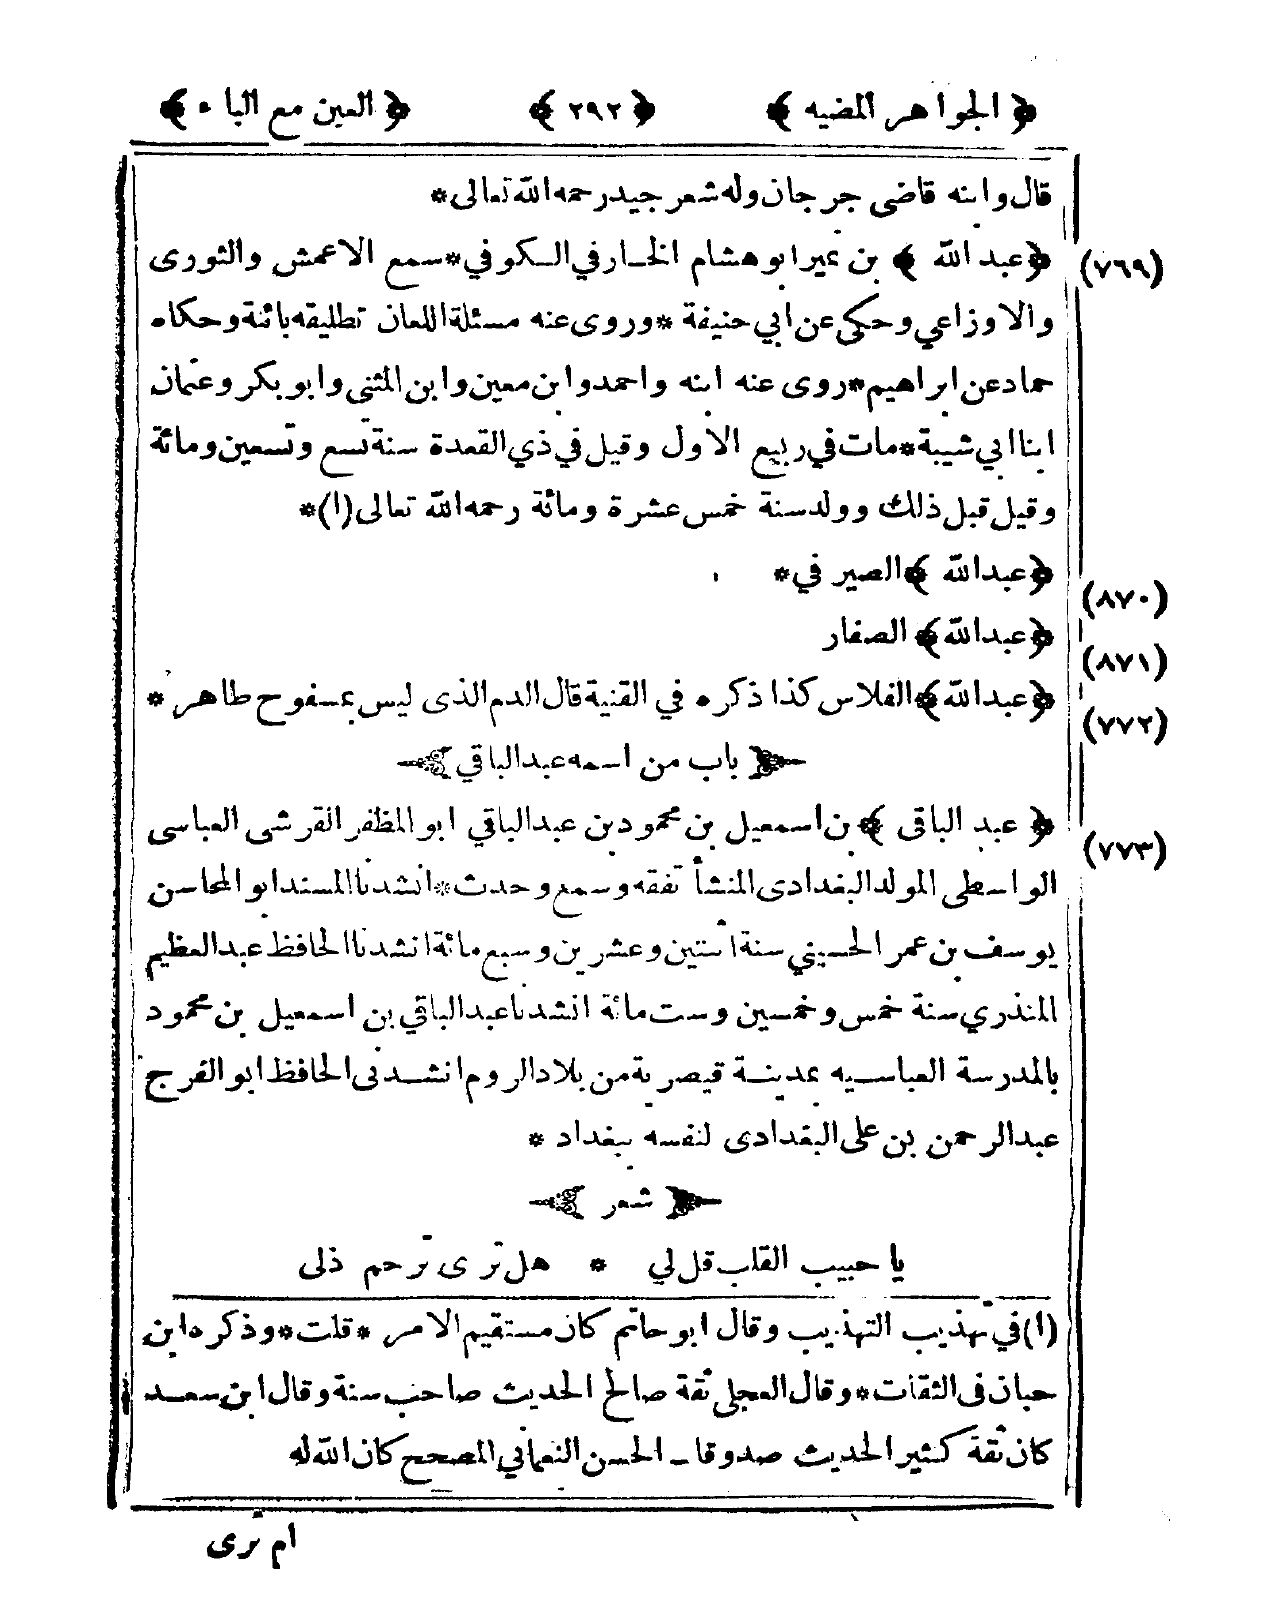 ﴿ الجواهر المضيه ﴾ ﴿ ٢٩٢ ﴾ ﴿ العين مع الباء ﴾
قال وابنه قاضى جرجان وله شعر جيد رحمه الله تعالى *
(٧٦٩) ﴿ عبد الله ﴾ بن نمير ابو هشام الخارفي الكوفي * سمع الاعمش والثورى
والاوزاعي وحكى عن ابي حنيفة * وروى عنه مسئلة اللعان تطليقه بائنة وحكاه
حماد عن ابراهيم * روى عنه ابنه واحمد وابن معين وابن المثنى وابو بكر وعثمان
ابنا ابي شيبة * مات في ربيع الاول وقيل في ذي القعدة سنة تسع وتسعين ومائة
وقيل قبل ذلك وولد سنة خمس عشرة ومائة رحمه الله تعالى (١) *
(٨٧٠) ﴿ عبد الله ﴾ الصيرفي *
(٨٧١) ﴿ عبد الله ﴾ الصفار
(٧٧٢) ﴿ عبد الله ﴾ الفلاس كذا ذكره في القنية قال الدم الذى ليس بمسفوح طاهر *
باب من اسمه عبد الباقي
(٧٧٣) ﴿ عبد الباقى ﴾ بن اسمعيل بن محمود بن عبد الباقي ابو المظفر القرشى العباسى
الواسطى المولد البغدادى المنشأ تفقه وسمع وحدث * انشدنا المسند ابو المحاسن
يوسف بن عمر الحسيني سنة اثنتين وعشرين وسبع مائة انشدنا الحافظ عبد العظيم
المنذري سنة خمس وخمسين وست مائة انشدنا عبد الباقي بن اسمعيل بن محمود
بالمدرسة العباسيه بمدينة قيصرية من بلاد الروم انشدنى الحافظ ابو الفرج
عبد الرحمن بن على البغدادى لنفسه ببغداد *
شعر
يا حبيب القلب قل لي * هل ترى ترحم ذلى
(١) في تهذيب التهذيب وقال ابو حاتم كان مستقيم الامر * قلت * وذكره ابن
حبان فى الثقات * وقال العجلى ثقة صالح الحديث صاحب سنة وقال ابن سعد
كان ثقة كثير الحديث صدوقا ـ الحسن النعماني المصحح كان الله له
ام ترى